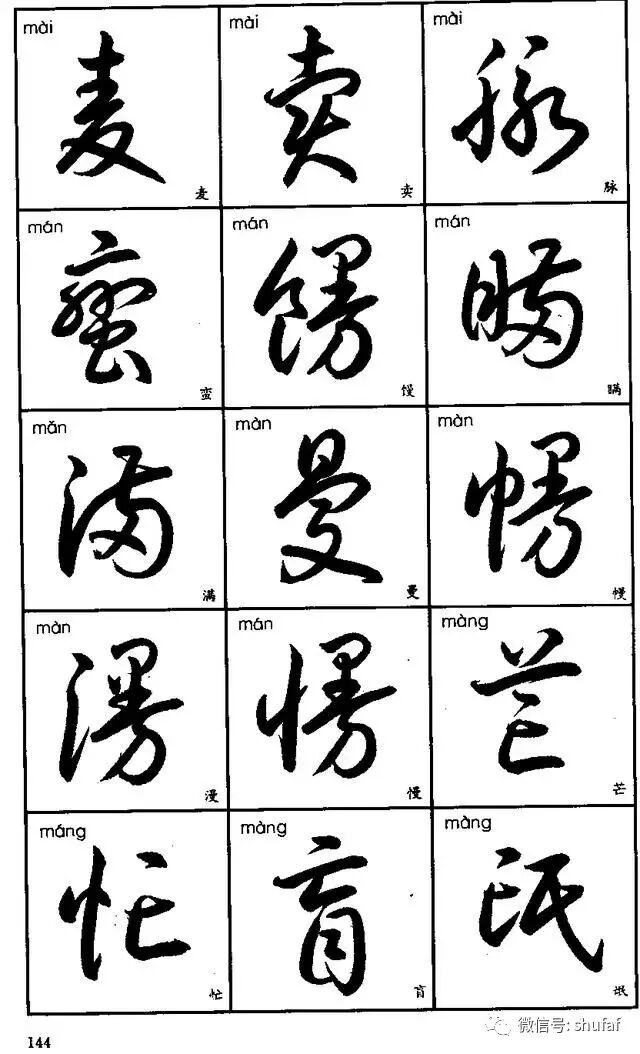 mài mài mài
麦 卖 脉
麦 卖 脉
mán mán mán
蛮 馒 瞒
蛮 馒 瞒
mǎn màn màn
满 曼 幔
满 曼 幔
màn mán màng
漫 慢 芒
漫 慢 芒
máng màng màng
忙 盲 氓
忙 盲 氓
微信号: shufaf
144